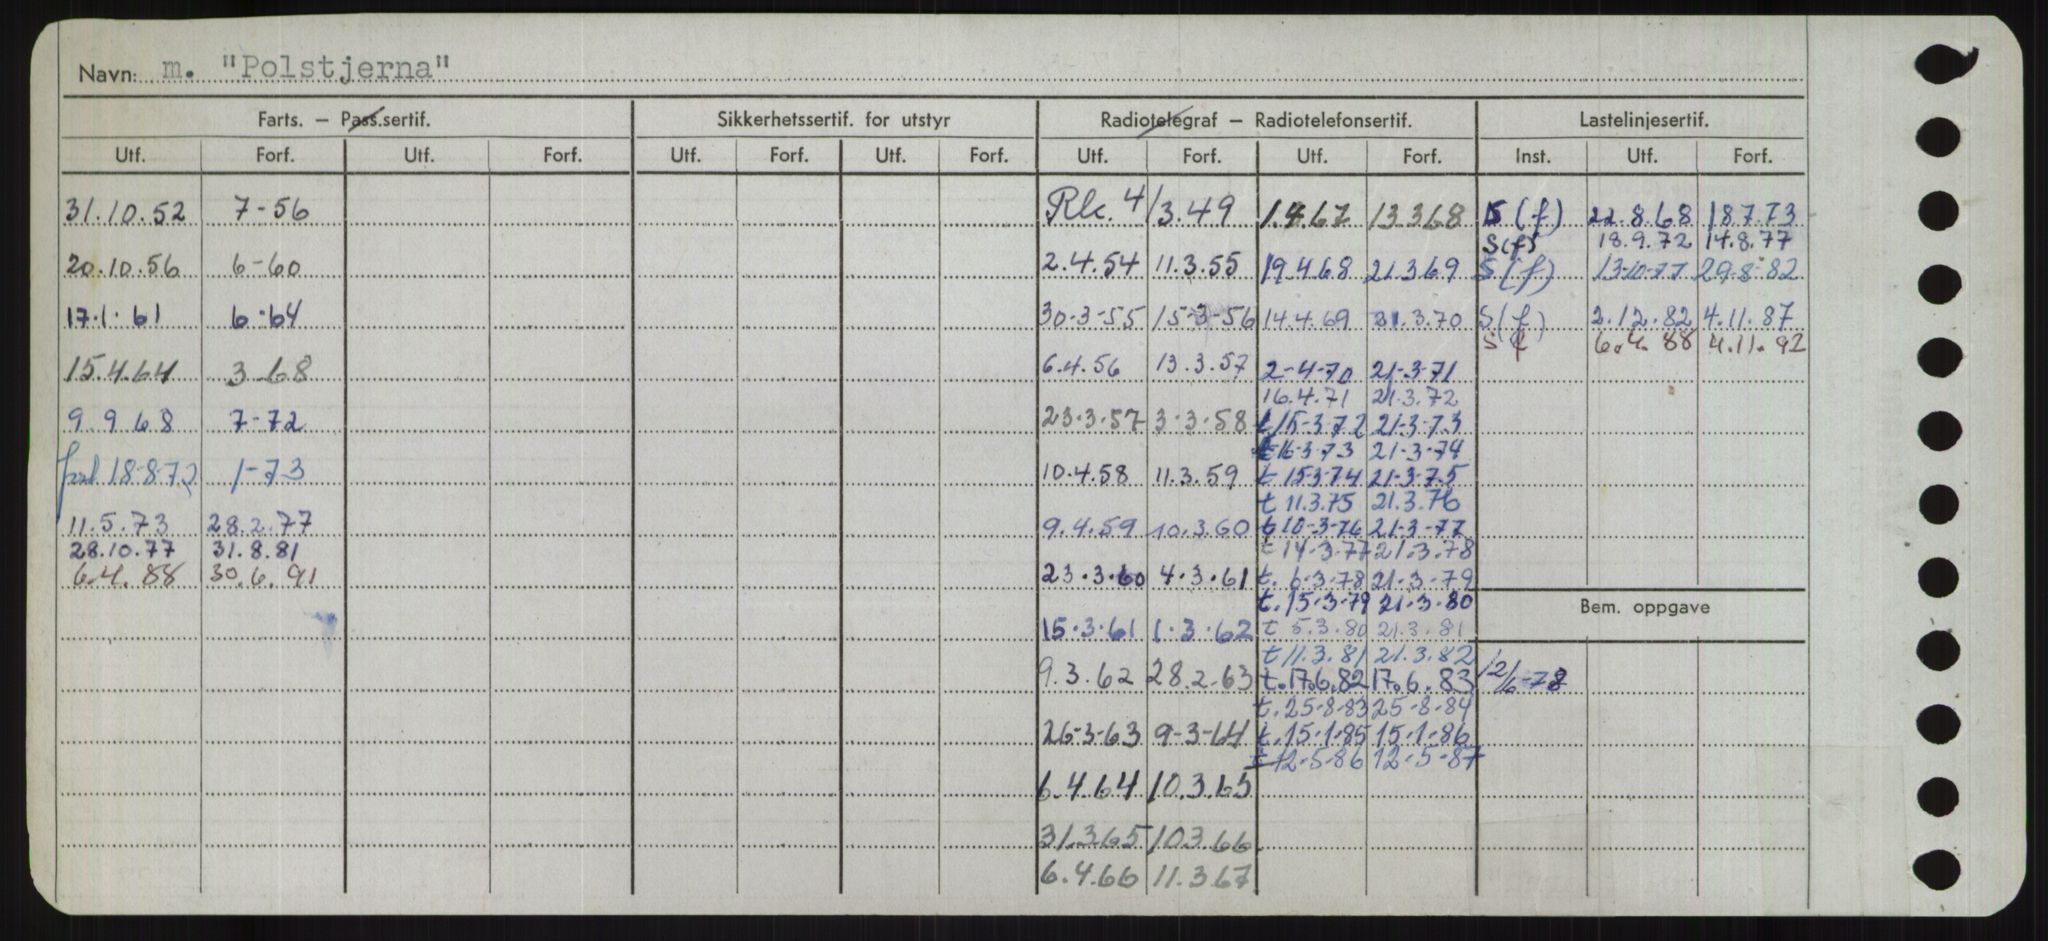 Navn: m. "Polstjerna"
Farts. – Pass.sertif. Sikkerhetssertif. for utstyr Radiotelegraf – Radiotelefonsertif. Lastelinjesertif.
Utf. Forf. Utf. Forf. Utf. Forf. Utf. Forf. Utf. Forf. Utf. Forf. Inst. Utf. Forf.
31.10.52 7-56 Rk. 4/3.49 1.4.67 13.3.68 S(f) 22.8.68 18.7.73
S(f) 18.9.72 14.8.77
20.10.56 6-60 2.4.54 11.3.55 19.4.68 21.3.69 S(f) 13-10-77 29.8.82
17.1.61 6.64 30-3-55 15-3-56 14.4.69 21.3.70 S(f) 2.12.82 4.11.87
S f 6.4.88 4.11.92
15.4.64 3.68 6.4.56 13.3.57 2-4-70 21-3-71
16.4.71 21.3.72
9.9.68 7-72 23.3.57 3.3.58 t.15-3-72 21-3-73
t16-3-73 21-3-74
forl 18-8-72 1-73 10.4.58 11.3.59 t.15-3-74 21-3-75
t 11.3.75 21.3.76
11.5.73 28.2.77 9.4.59 10.3.60 t10-3-76 21-3-77
28.10.77 31.8.81 t 14.3.77 21.3.78
6.4.88 30.6.91 23.3.60 4.3.61 t. 6-3-78 21-3-79
t.15-3-79 21-3-80 Bem. oppgave
15.3.61 1.3.62 t 5.3.80 21.3.81
t 11.3.81 21.3.82
9.3.62 28.2.63 t.17.6.82 17.6.83 12/6-78
t.25-8-83 25-8-84
26-3-63 9-3-64 t.15-1-85 15-1-86
t 12-5-86 12-5-87
6.4.64 10.3.65
31.3.65 10.3.66
6.4.66 11.3.67